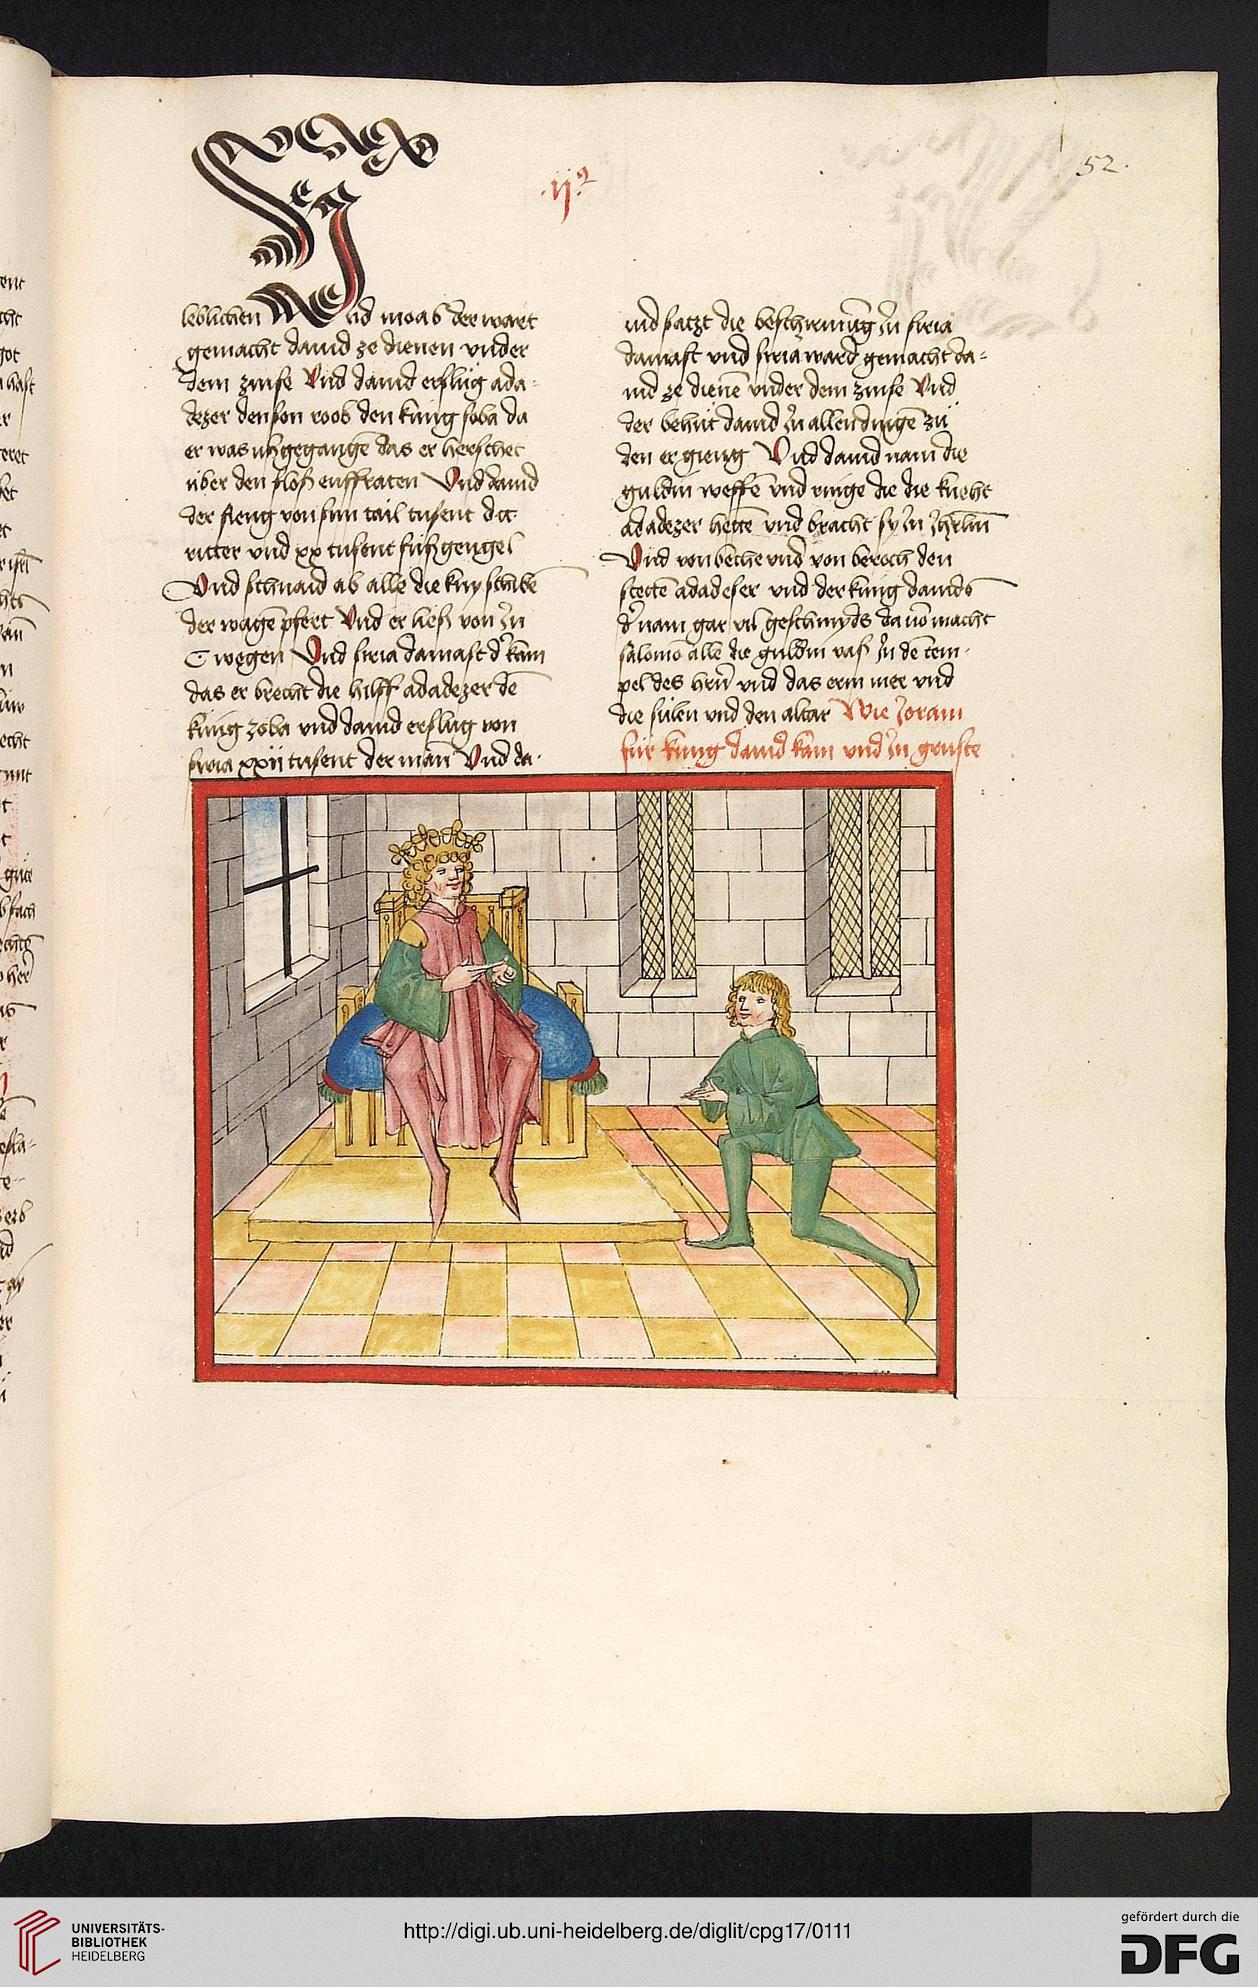 .ij.
52.
leblichen Und moab der wart
gemacht dauid ze dienen vnder
dem zinse Vnd dauid erslůg ada-
dezer den son roob den kung soba da
er was ußgegangen das er herschet
über den floß euffraten Vnd dauid
der fieng von sim tail tusent
ritter vnd xx tusent fůßgengel
Vnd schnaid ab alle die kny schibē
der wagē pfert Vnd er ließ von jn
C wegen Vnd siria damasc d' kam
das er brecht die hilff adadezer dē
kung zoba vnd dauid erslůg von
siria xxij tusent der man Vnd da-
uid satzt die beschirmūg jn siria
damasc vnd siria ward gemacht da-
uid ze dienē vnder dem zinse Vnd
der behůt dauid jn allen dingē zů
den er gieng Vnd dauid nam die
guldin weffē vnd ringe die die knecht
adadezer hettē vnd bracht sy jn jhrlm
Vnd von beche vnd von beroch den
stettē adadeser vnd der kung dauids
d' nam gar vil geschmyds da vō macht
salomō alle die guldin vaß jn dē tem-
pel des hrn vnd das erin mer vnd
die sulen vnd den altar Wie Joram
für kung dauid kam vnd jn gruste
UNIVERSITÄTS-
BIBLIOTHEK
HEIDELBERG
http://digi.ub.uni-heidelberg.de/diglit/cpg17/0111
gefördert durch die
DFG